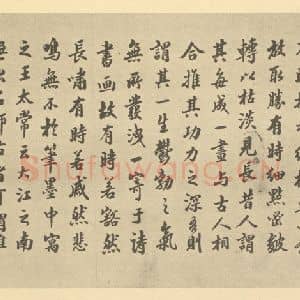 放取勝有時細點密皴
轉以枯淡見長昔人謂
其每成一畫与古人相
合推其功力之深
謂其一生鬱勃之氣
無所發洩一寄于詩
書画故有時若豁然
長嘯有時若戚然悲
鳴無不於筆墨中寓
之王太常云大江之南
無出石師右者可謂推
Shufawang.cn